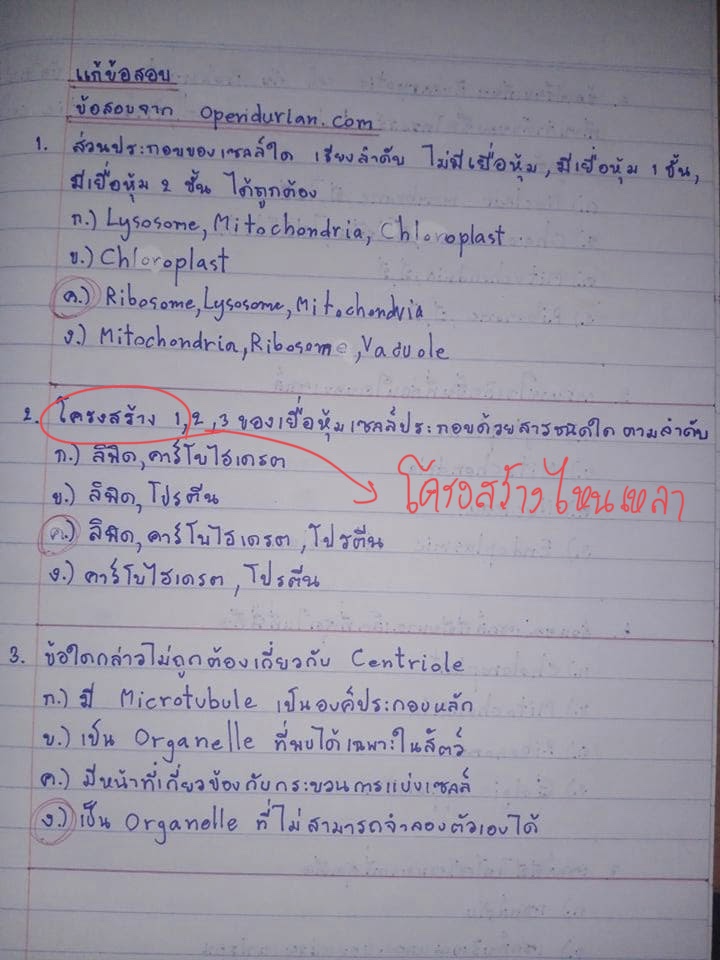 แก้ข้อสอบ
ข้อสอบจาก opendurian.com
1. ส่วนประกอบของเซลล์ใด เรียงลำดับ ไม่มีเยื่อหุ้ม, มีเยื่อหุ้ม 1 ชั้น,
มีเยื่อหุ้ม 2 ชั้น ได้ถูกต้อง
ก.) Lysosome, Mitochondria, Chloroplast
ข.) Chloroplast
ค.) Ribosome, Lysosome, Mitochondria
ง.) Mitochondria, Ribosome, Vacuole
2. โครงสร้าง 1,2,3 ของเยื่อหุ้มเซลล์ประกอบด้วยสารชนิดใด ตามลำดับ
ก.) ลิพิด, คาร์โบไฮเดรต
โครงสร้างไหนเหลา
ข.) ลิพิด, โปรตีน
ค.) ลิพิด, คาร์โบไฮเดรต, โปรตีน
ง.) คาร์โบไฮเดรต, โปรตีน
3. ข้อใดกล่าวไม่ถูกต้องเกี่ยวกับ Centriole
ก.) มี Microtubule เป็นองค์ประกอบหลัก
ข.) เป็น Organelle ที่พบได้เฉพาะในสัตว์
ค.) มีหน้าที่เกี่ยวข้องกับกระบวนการแบ่งเซลล์
ง.) เป็น Organelle ที่ไม่สามารถจำลองตัวเองได้